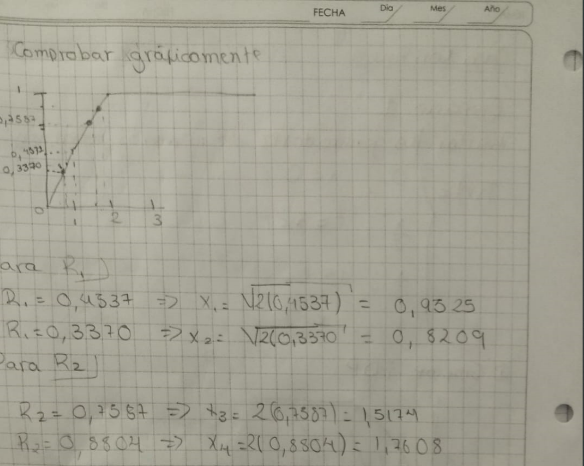 FECHA Día Mes Año
Comprobar gráficamente
1
0,7587
0,4537
0,3370
0 1 2 3
ara R₁)
R₁ = 0,4537 => x₁ = √2(0,4537) = 0,9525
R₁ = 0,3370 => x₂ = √2(0,3370 = 0,8209
Para R₂)
R₂ = 0,7587 => x₃ = 2(0,7587) = 1,5174
R₂ = 0,8804 => x₄ = 2(0,8804) = 1,7608